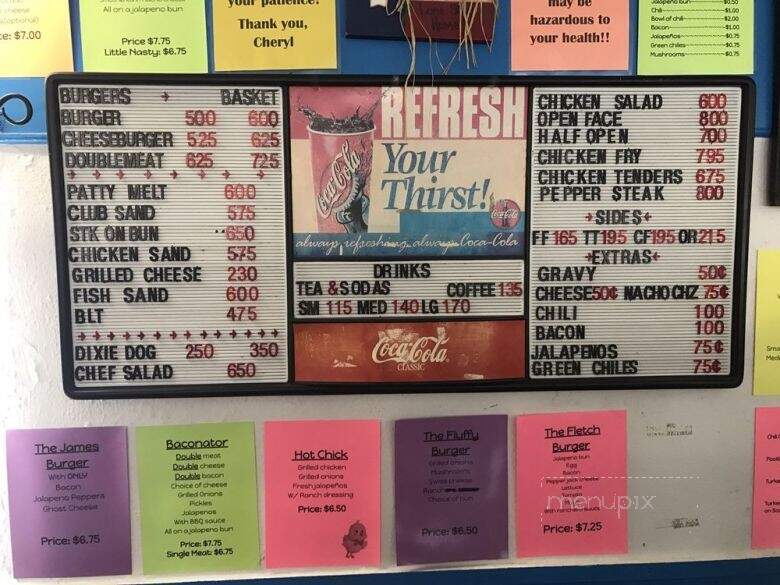 cheese
(optional)
ce: $7.00
All on a jalapeno bun
Price $7.75
Little Nasty: $6.75
your patience!
Thank you,
Cheryl
may be
hazardous to
your health!!
Jalapeno bun $0.50
Chili $1.00
Bowl of chili $2.00
Bacon $1.00
Jalapeños $0.75
Green chilies $0.75
Mushrooms $0.75
BURGERS → BASKET
BURGER 500 600
CHEESEBURGER 525 625
DOUBLEMEAT 625 725
PATTY MELT 600
CLUB SAND 575
STK ON BUN 650
CHICKEN SAND 575
GRILLED CHEESE 230
FISH SAND 600
BLT 475
DIXIE DOG 250 350
CHEF SALAD 650
REFRESH
Your
Thirst!
Coca-Cola
Coca-Cola
always refreshing, always Coca-Cola
DRINKS
TEA & SODAS COFFEE 135
SM 115 MED 140 LG 170
Coca-Cola
CLASSIC
CHICKEN SALAD 600
OPEN FACE 800
HALF OPEN 700
CHICKEN FRY 795
CHICKEN TENDERS 675
PEPPER STEAK 800
→SIDES←
FF 165 TT 195 CF 195 OR 215
→EXTRAS←
GRAVY 50¢
CHEESE 50¢ NACHO CHZ 75¢
CHILI 100
BACON 100
JALAPENOS 75¢
GREEN CHILES 75¢
The James
Burger
With ONLY
Bacon
Jalapeno Peppers
Ghost Cheese
Price: $6.75
Baconator
Double meat
Double cheese
Double bacon
Choice of cheese
Grilled Onions
Pickles
Jalapenos
With BBQ sauce
All on a jalapeno bun
Price: $7.75
Single Meat: $6.75
Hot Chick
Grilled chicken
Grilled onions
Fresh jalapeños
W/ Ranch dressing
Price: $6.50
The Fluffy
Burger
Grilled onions
Mushrooms
Swiss cheese
Ranch
Choice of bun
Price: $6.50
The Fletch
Burger
Jalapeno bun
Egg
Bacon
Pepper jack cheese
Lettuce
Tomato
Price: $7.25
menupix